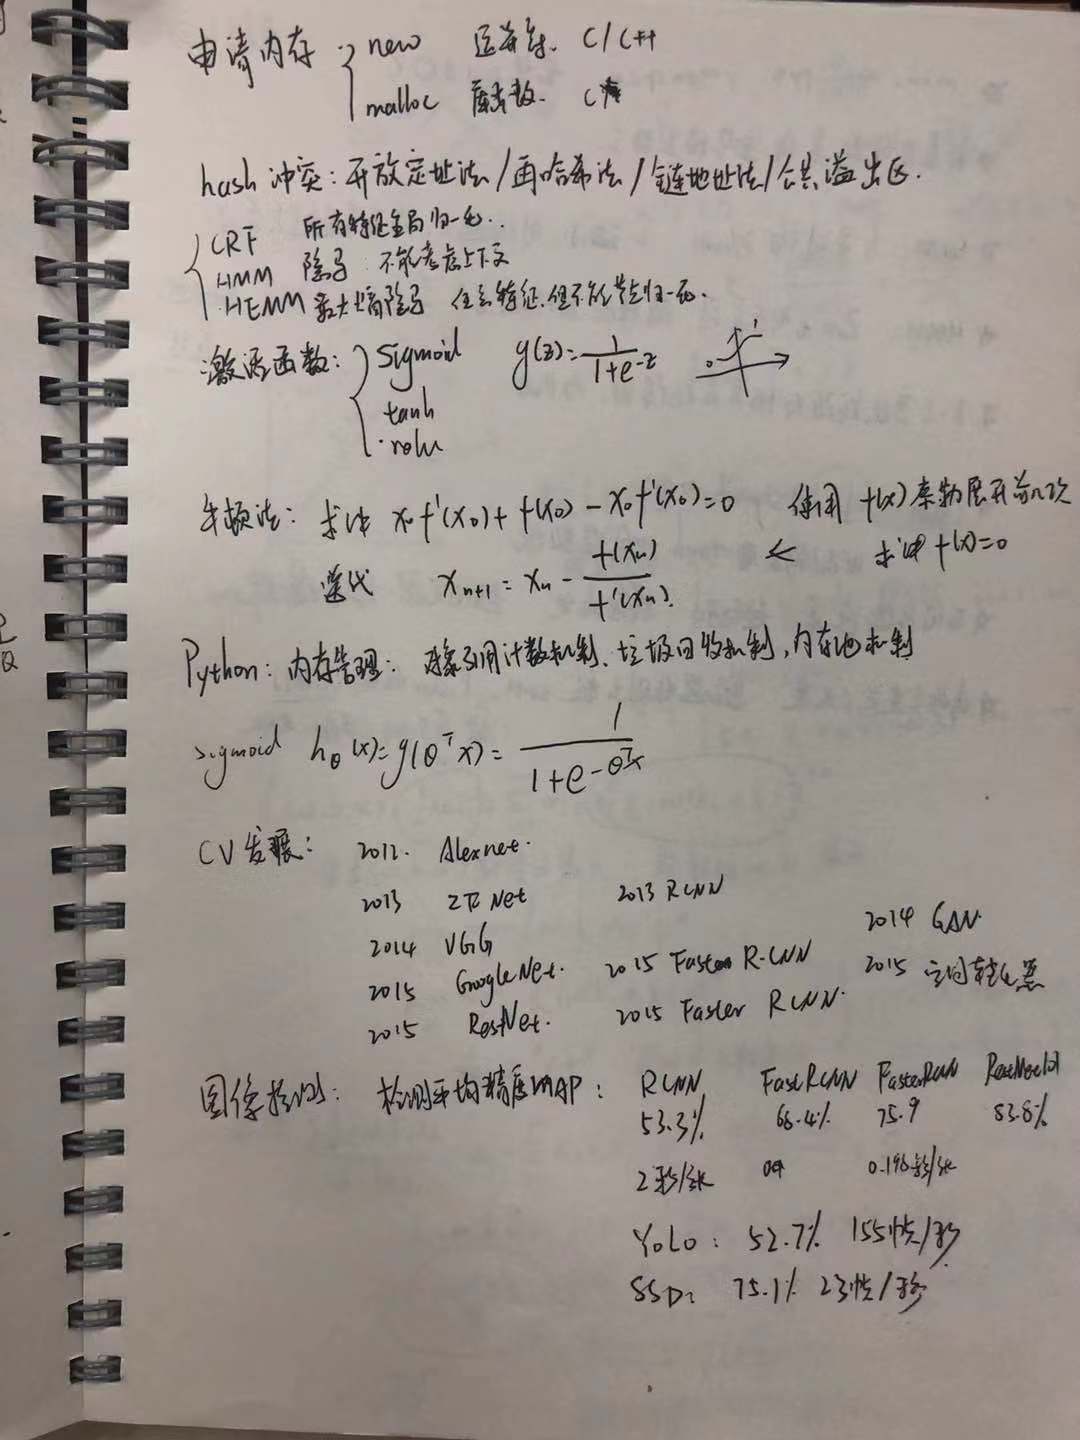 申请内存 new 运算符. C/C++
malloc 库函数. C
hash 冲突: 开放定址法/再哈希法/链地址法/公共溢出区.
CRF 所有特征全局归一化.
HMM 隐马 不能考虑上下文
HEMM 最大熵隐马 任意特征,但不能节点归一化.
激活函数: Sigmoid g(z)=1/(1+e^-z) 0 1
tanh
relu
牛顿法: 求解 x₀f'(x₀)+f(x₀)-x₀f'(x₀)=0 使用 f(x)泰勒展开前几次
迭代 xₙ₊₁=xₙ-f(xₙ)/f'(xₙ). < 求解 f(x)=0
Python: 内存管理: 对象引用计数机制、垃圾回收机制,内存池机制
sigmoid hθ(x)=g(θᵀx)=1/(1+e^-θᵀx)
CV发展: 2012. Alexnet.
2013 ZF Net 2013 RCNN
2014 VGG 2014 GAN
2015 GoogleNet. 2015 Fast R-CNN 2015 空间转化器
2015 ResNet. 2015 Faster RCNN.
图像检测: 检测平均精度mAP: RCNN FastRCNN FasterRCNN ResNet101
53.3% 68.4% 75.9 83.8%
2秒/张 0.196秒/张
YOLO: 52.7% 155帧/秒
SSD: 75.1% 23帧/秒